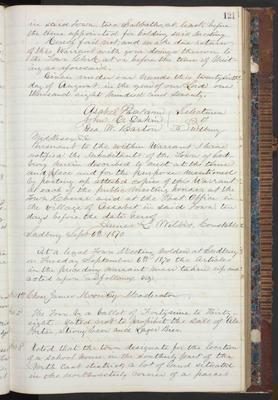 121
in said Town, two Sabbaths, at least, before
the time appointed for holding said meeting.
Hereof fail not, and make due return
of this Warrant with your doings thereon to
the Town Clerk at or before the time of Meet-
ing as aforesaid.
Given under our hands this
day of August, in the year of our Lord one
thousand eight hundred and seventy.
Selectmen
of
Geo. W. Barton Sudbury
Middlesex SS.
Pursuant to the within Warrant I have
notified the Inhabitants of the Town of Sud-
bury herein described to meet at the time
and place and for the purposes mentioned
by posting up attested copies of this Warrant
at each of the public Meeting houses at the
Town House and at the Post Office in
the village of Assabet in said Town ten
days before the date hereof
Constable
Sudbury Sept. 6th 1870
At a legal Town Meeting holden at Sudbury
on Tuesday September 6th 1870 the Articles
in the preceding warrant were taken up and
acted upon as follows viz.
Art 1st Chose James Moore Esq. Moderator
Art 2 The Town by a ballot of Forty nine to Thirty
eight voted not to prohibit the sale of Ale
Porter, Strong beer and Lager Bier.
Art 3 Voted that the town designate for the location
of a school house in the southerly part of the
North East district, a lot of land situated
in the southwesterly corner of a parcel